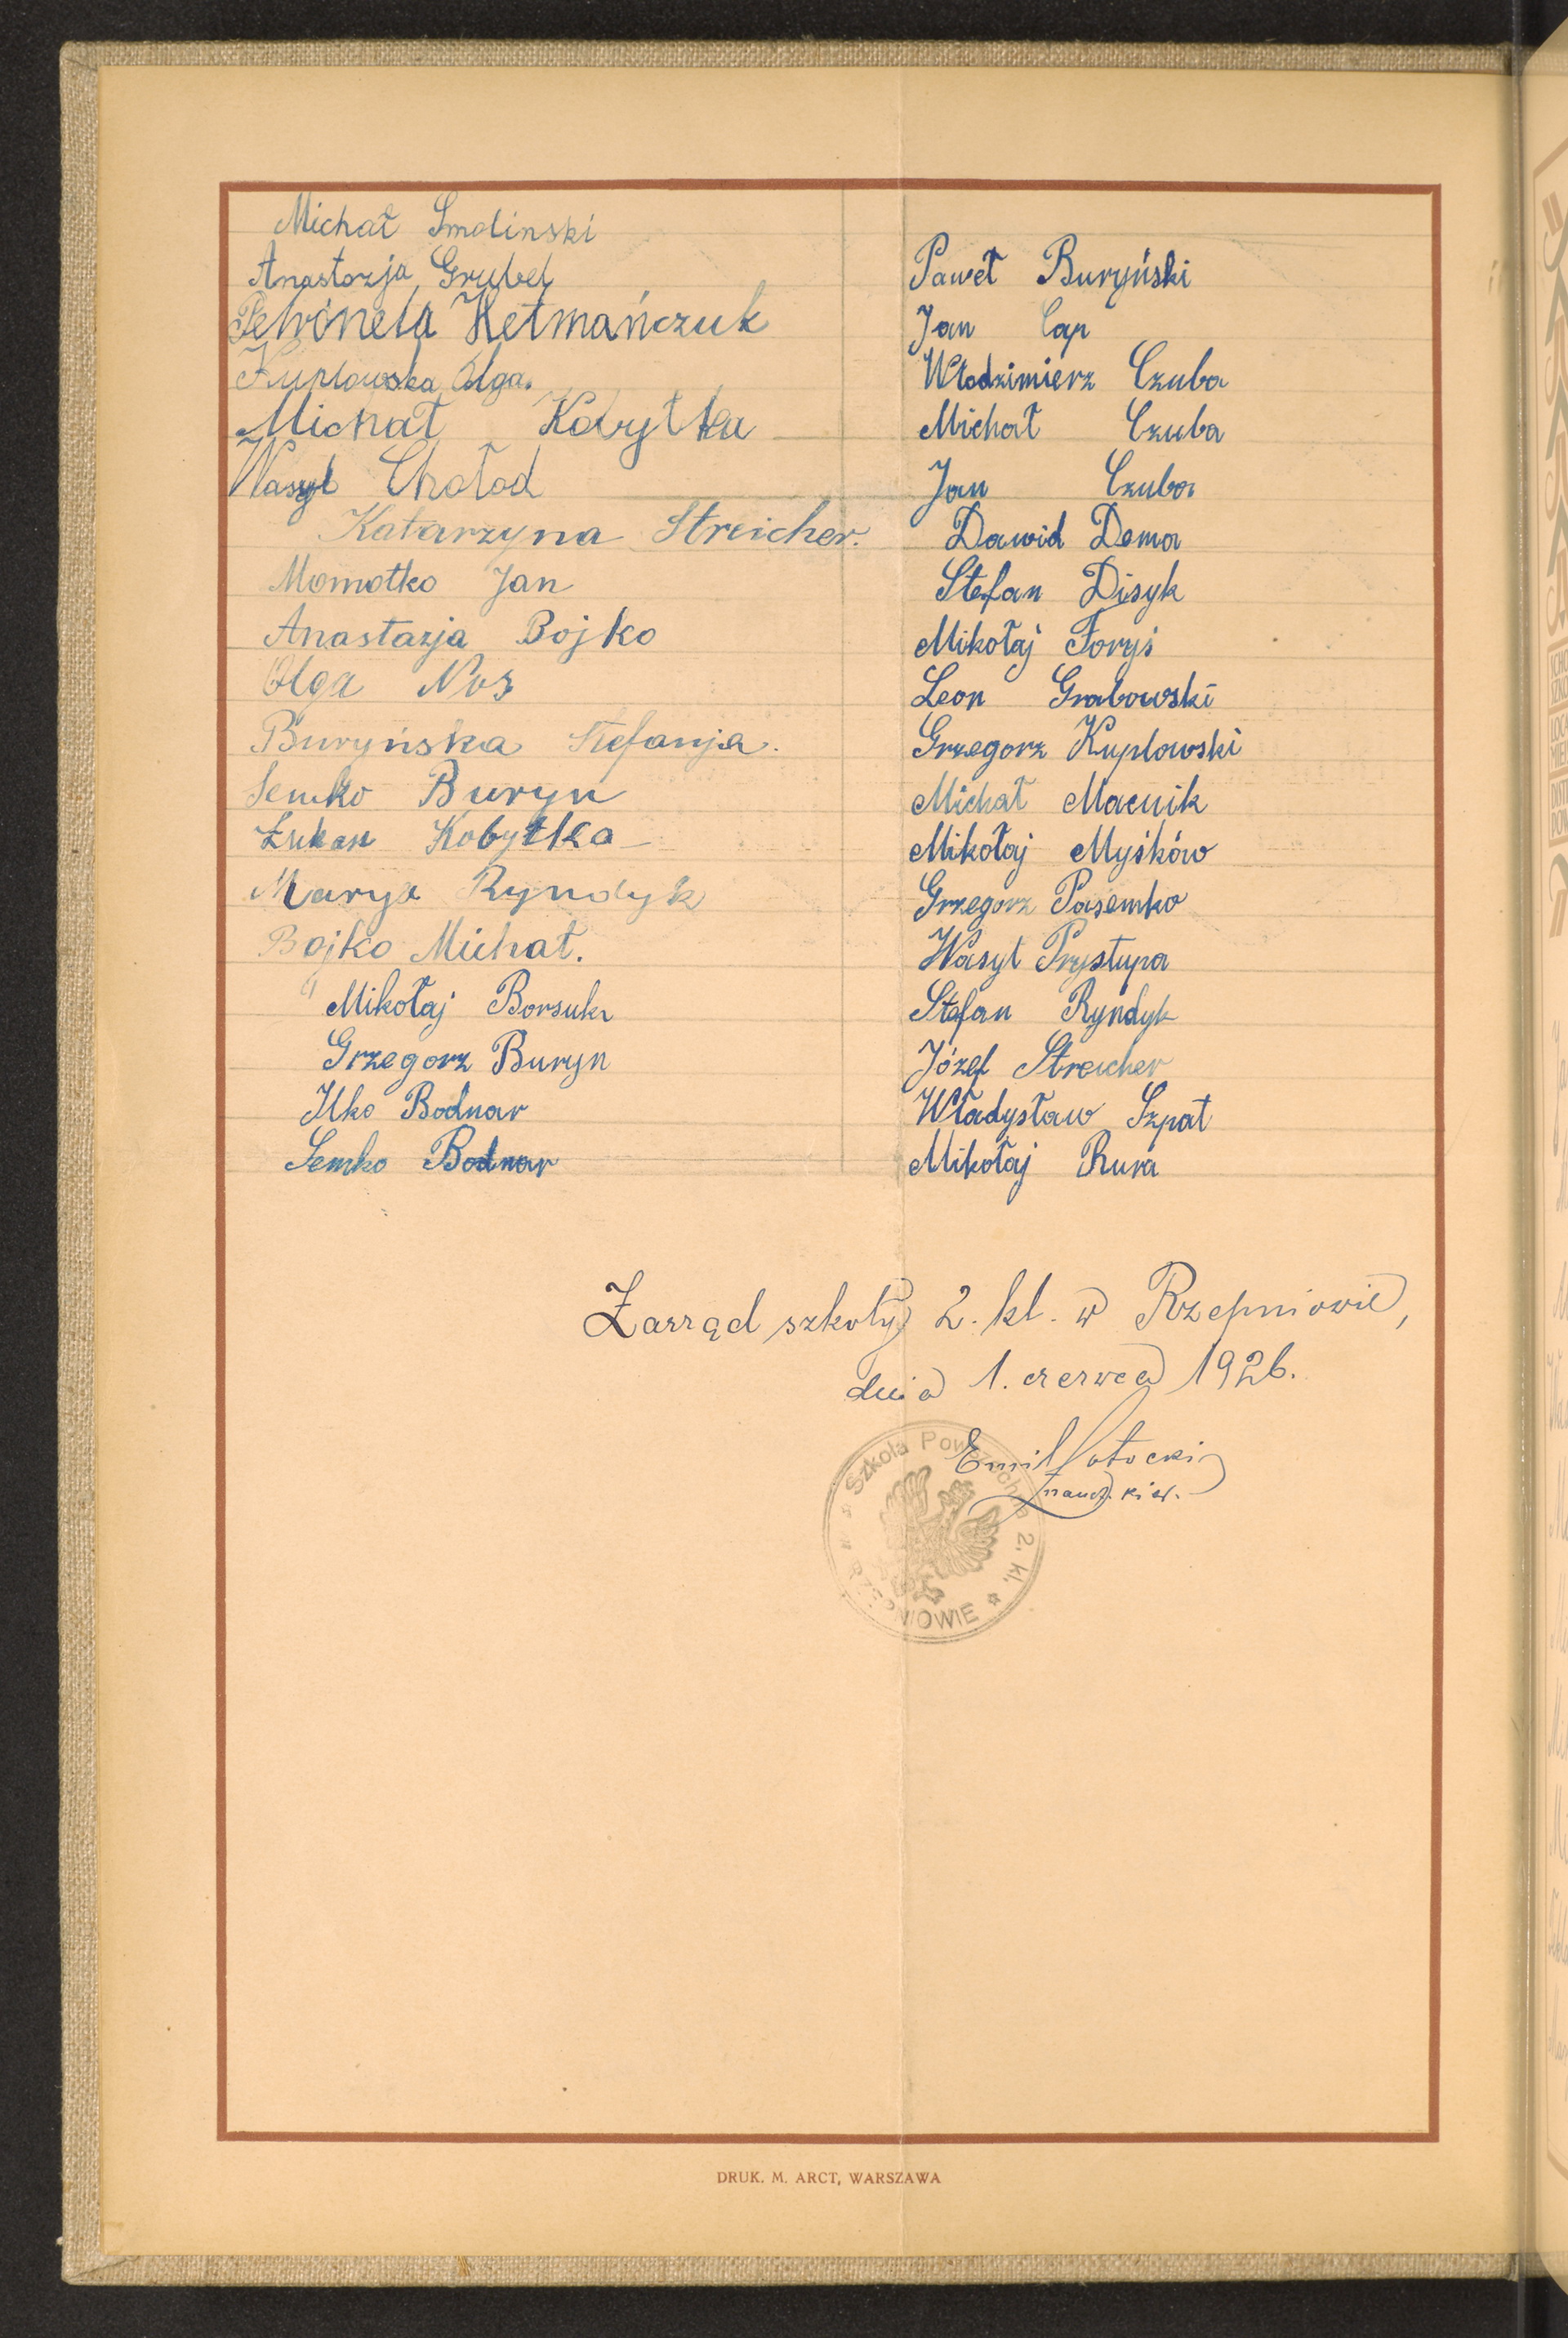 Michał Smolinski
Anastazja Grubel
Petronela Hetmańczuk
Kuplowska Olga.
Michał Kobyłka
Wasyl Chołod
Katarzyna Streicher.
Momotko Jan
Anastazja Bojko
Olga Nos
Buryńska Stefanja.
Semko Buryn
Łukan Kobyłka
Marya Ryndyk
Bojko Michał.
Mikołaj Borsuk
Grzegorz Buryn
Ilko Bodnar
Semko Bodnar
Paweł Buryński
Jan Cap
Włodzimierz Czuba
Michał Czuba
Jan Czuba
Dawid Dema
Stefan Disyk
Mikołaj Foryś
Leon Grabowski
Grzegorz Kuplowski
Michał Macnik
Mikołaj Myśków
Grzegorz Pasemko
Wasyl Prystupa
Stefan Ryndyk
Józef Streicher
Władysław Szpat
Mikołaj Rura
Zarząd szkoły 2. kl. w Rzepniowie,
dnia 1. czerwca 1926.
Emil Potocki
naucz. kier.
Szkoła Powszechna 2. kl. w RZEPNIOWIE
DRUK. M. ARCT, WARSZAWA